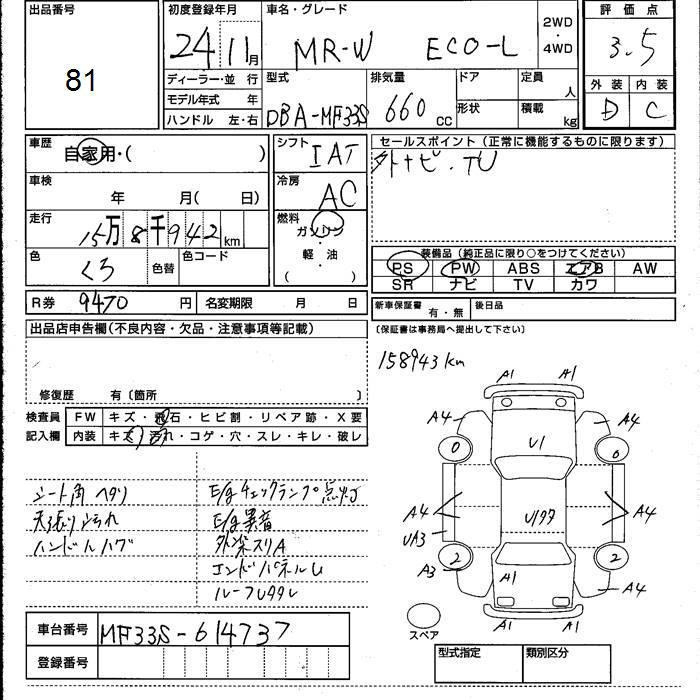 出品番号
81
初度登録年月
24 11月
車名・グレード
MR-W ECO-L
2WD
・
4WD
評価点
3.5
外装 内装
D C
ディーラー・並行
モデル年式 年
ハンドル 左・右
型式
DBA-MF33S
排気量
660 cc
ドア
形状
定員 人
積載 kg
車歴
自家用・( )
車検
年 月( 日)
走行
15万8千942km
色
くろ
色替
色コード
シフト
IAT
冷房
AC
燃料
ガソリン
・
軽・油
( )
セールスポイント(正常に機能するものに限ります)
外ナビ.TV
装備品(純正品に限り○をつけてください)
PS PW ABS エアB AW
SR ナビ TV カワ
R券 9470 円 名変期限 月 日
新車保証書 有・無 後日品
(保証書は事務局へ提出して下さい)
出品店申告欄(不良内容・欠品・注意事項等記載)
修復歴 有〔箇所 〕
検査員
記入欄
FW キズ・飛石・ヒビ割・リペア跡・X要
内装 キズ・汚れ・コゲ・穴・スレ・キレ・破レ
シート角ヘタリ
天張り汚れ
ハンドルハゲ
E/gチェックランプ点灯
E/g異音
外装スリA
エンドパネルU
ルーフ
158943km
A1 A1
A4 A4
0 0
U1
A4 A4
UA3
2 2
A3 A1 A4
A1 A1
スペア
車台番号 MF33S-614737
登録番号
型式指定 類別区分